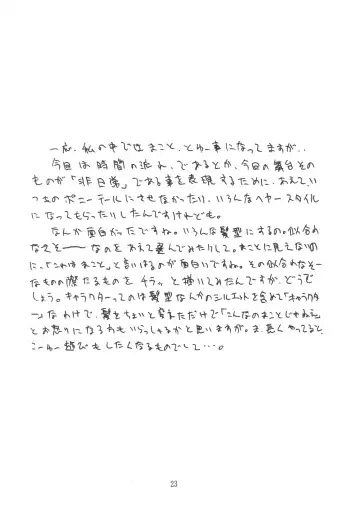 一応、私の中ではまこと、とゆー事になってますが、
今回は時間の流れ、であるとか、今回の舞台その
ものが「非日常」である事を表現するために、あえて、い
つものポニーテールにさせなかったり、いろんなヘアースタイル
になってもらったりしたんですけれども。
なんか面白かったですね。いろんな髪型にするの。似合わ
なそーーなのをあえて選んでみたりして。まことに見えないの
に、「これはまこと」と言いはるのが面白いですね。その似合わなそー
なものの際たるものを チラッ と描いてみたんですが、どうで
しょう。キャラクターってのは髪型なんかのシルエットを含めて「キャラクタ
ー」なわけで、髪をちょいと変えただけで「こんなのまことじゃねえ」
とお怒りになる方もいらっしゃるかと思いますが。ま、長くやってると、
こーゆー遊びもしたくなるものでして…。
23